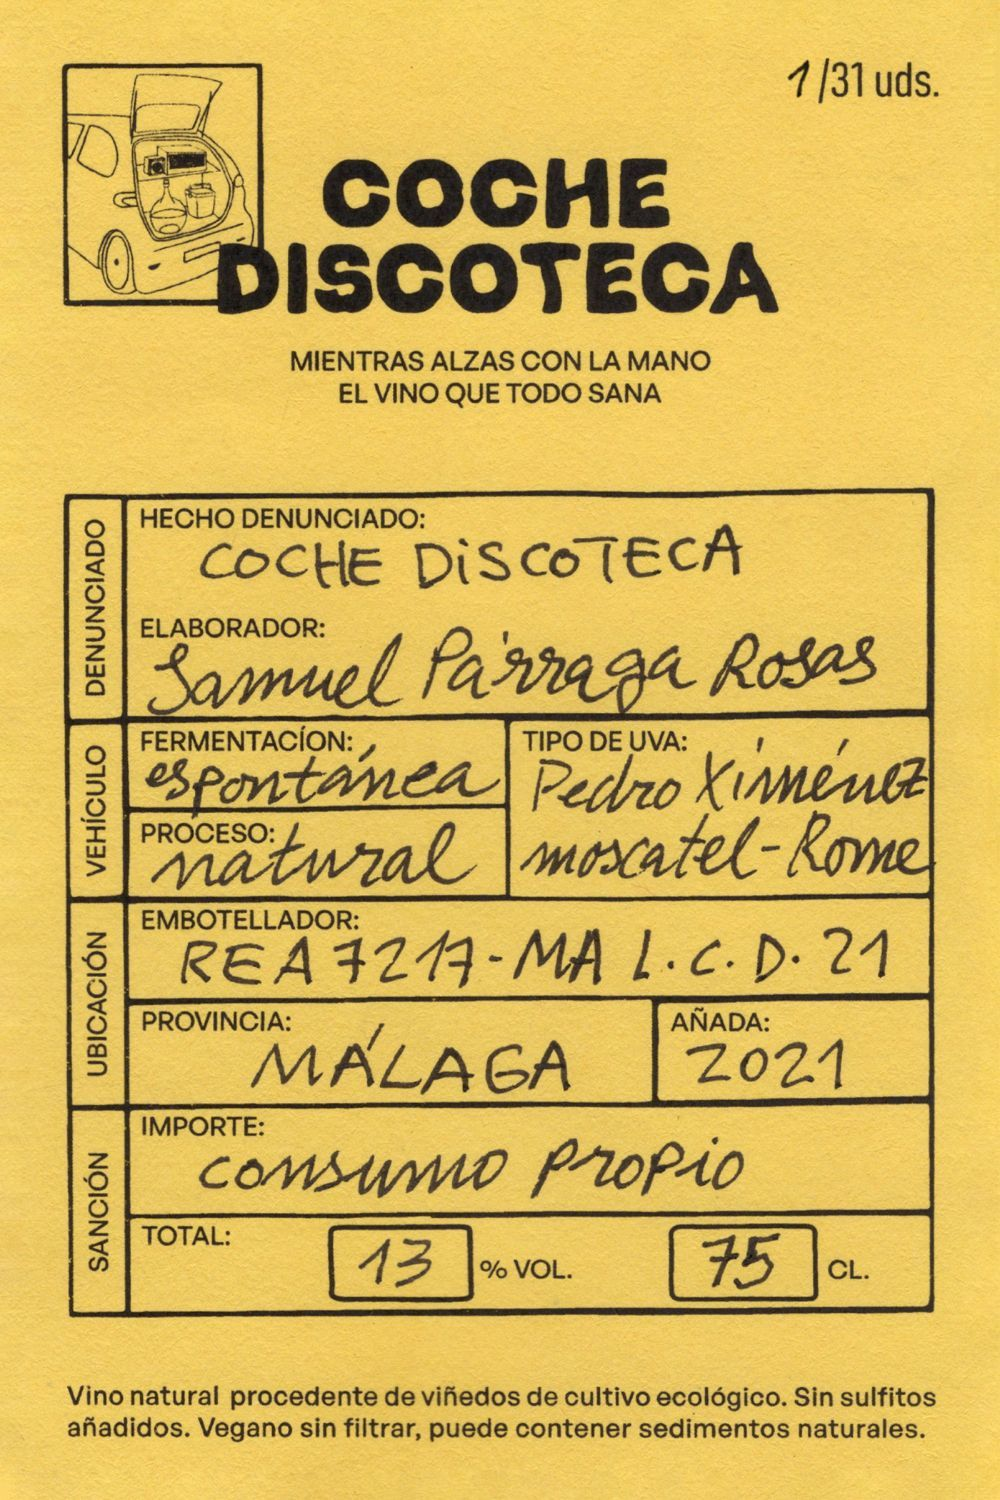 1/31 uds.
COCHE
DISCOTECA
MIENTRAS ALZAS CON LA MANO
EL VINO QUE TODO SANA
DENUNCIADO
HECHO DENUNCIADO:
COCHE DISCOTECA
ELABORADOR:
Samuel Párraga Rosas
VEHÍCULO
FERMENTACÍON:
espontánea
TIPO DE UVA:
Pedro Ximénez
moscatel-Rome
PROCESO:
natural
UBICACIÓN
EMBOTELLADOR:
REA 7217-MA L.C.D. 21
PROVINCIA:
MÁLAGA
AÑADA:
2021
SANCIÓN
IMPORTE:
consumo propio
TOTAL:
13 % VOL.
75 CL.
Vino natural procedente de viñedos de cultivo ecológico. Sin sulfitos
añadidos. Vegano sin filtrar, puede contener sedimentos naturales.